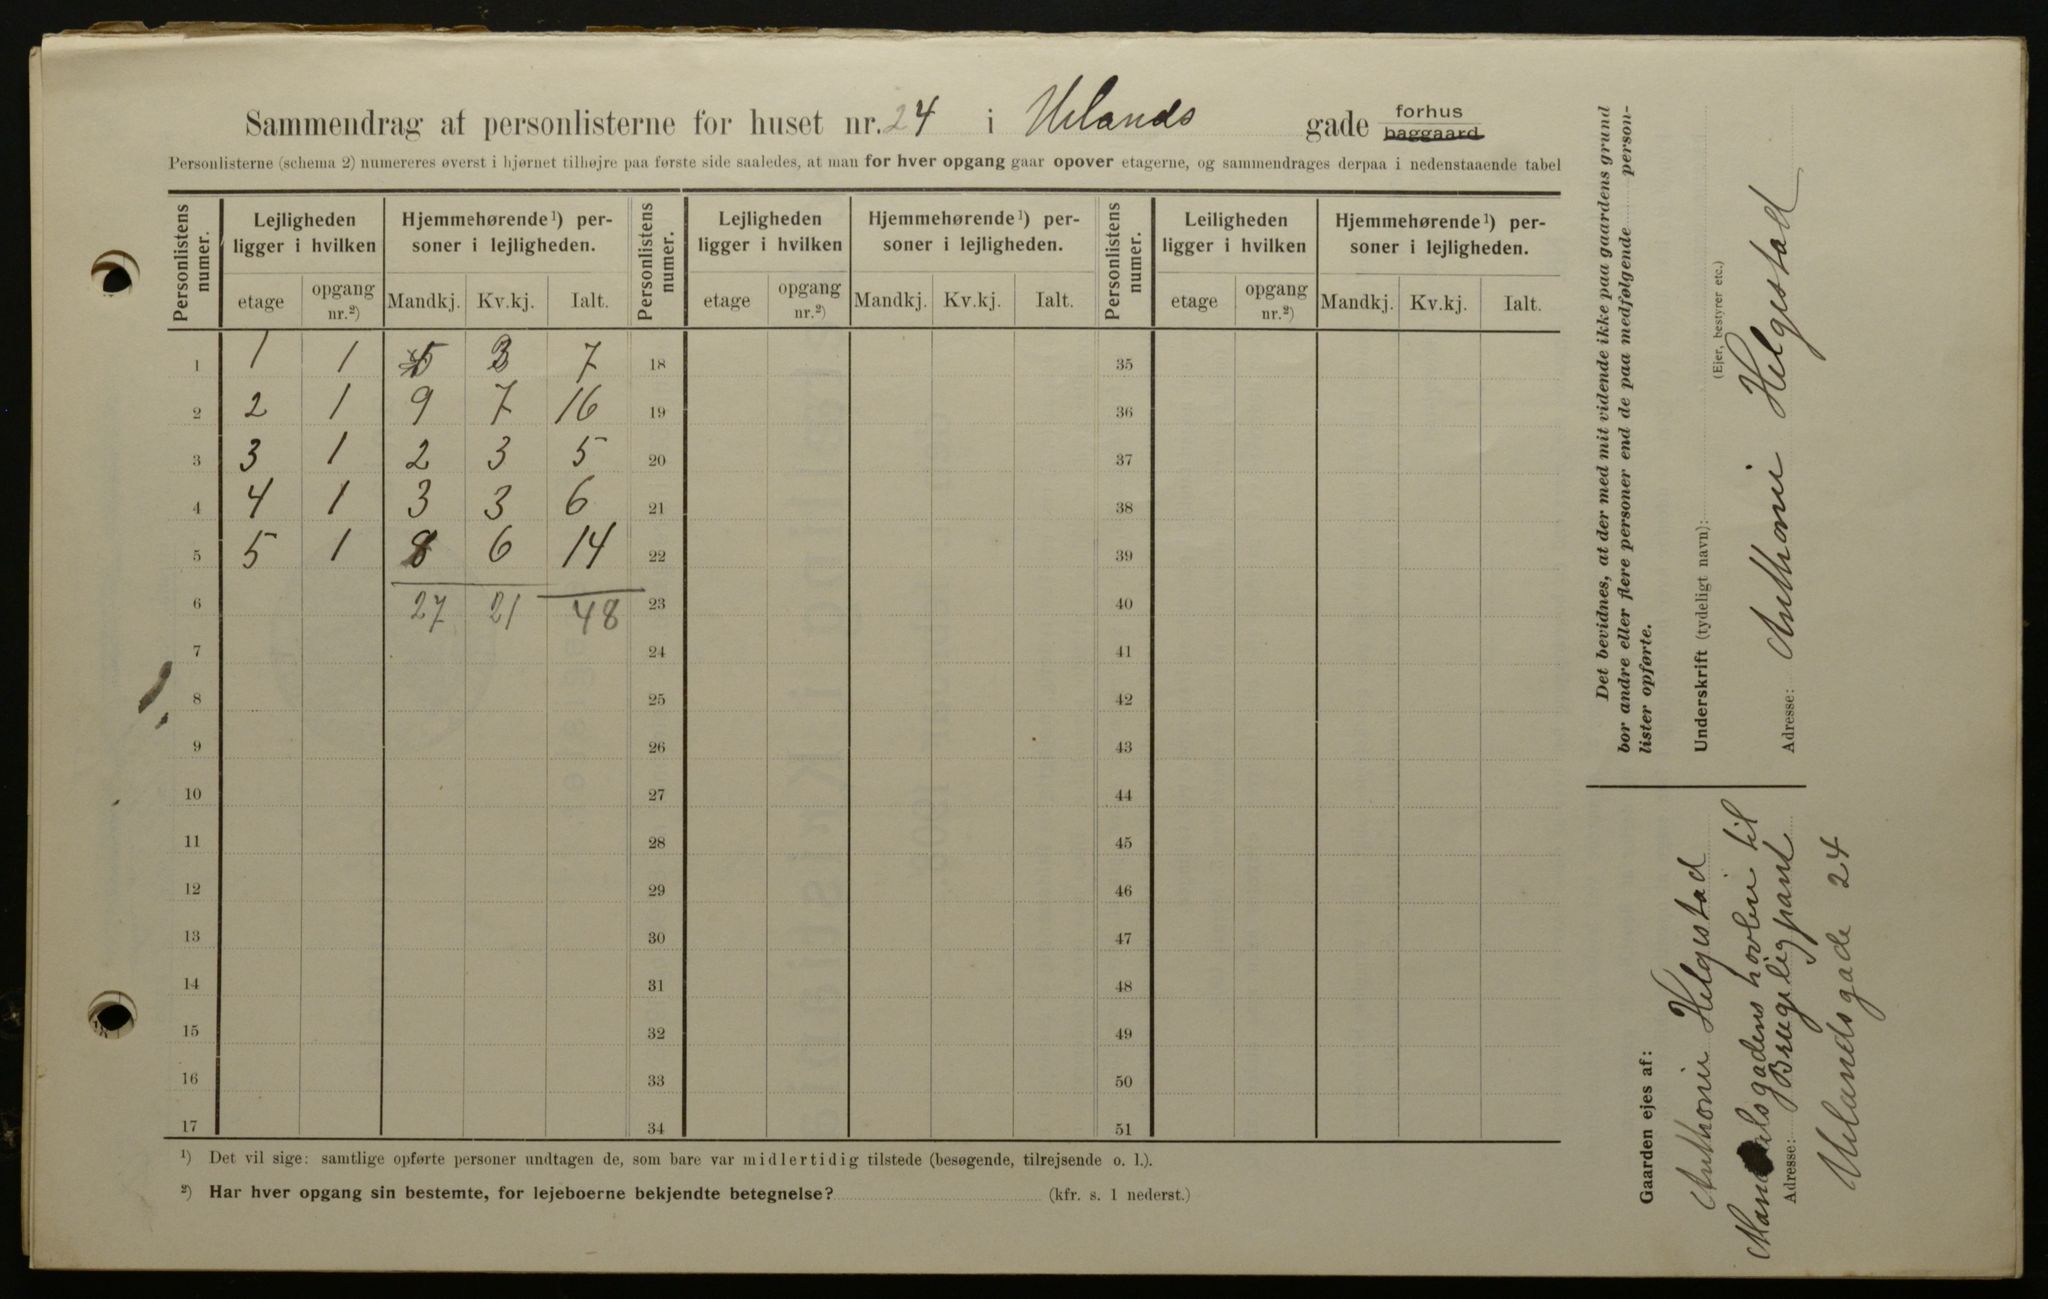 Sammendrag af personlisterne for huset nr. 24 i Uelands gade forhus baggaard
Personlisterne (schema 2) numereres øverst i hjørnet tilhøjre paa første side saaledes, at man for hver opgang gaar opover etagerne, og sammendrages derpaa i nedenstaaende tabel
Personlistens numer. Lejligheden ligger i hvilken Hjemmehørende¹) personer i lejligheden. Personlistens numer. Lejligheden ligger i hvilken Hjemmehørende¹) personer i lejligheden. Personlistens numer. Leiligheden ligger i hvilken Hjemmehørende¹) personer i lejligheden.
etage opgang nr.²) Mandkj. Kv.kj. Ialt. etage opgang nr.²) Mandkj. Kv.kj. Ialt. etage opgang nr.²) Mandkj. Kv.kj. Ialt.
1 1 1 5 7 18 35
2 2 1 9 7 16 19 36
3 3 1 2 3 5 20 37
4 4 1 3 3 6 21 38
5 5 1 8 6 14 22 39
6 27 21 48 23 40
7 24 41
8 25 42
9 26 43
10 27 44
11 28 45
12 29 46
13 30 47
14 31 48
15 32 49
16 33 50
17 34 51
¹) Det vil sige: samtlige opførte personer undtagen de, som bare var midlertidig tilstede (besøgende, tilrejsende o. l.).
²) Har hver opgang sin bestemte, for lejeboerne bekjendte betegnelse? (kfr. s. 1 nederst.)
Det bevidnes, at der med mit vidende ikke paa gaardens grund
bor andre eller flere personer end de paa medfølgende person-
lister opførte.
Underskrift (tydeligt navn):
(Ejer, bestyrer etc.)
Anthoni Helgestad
Adresse:
Gaarden ejes af:
Anthoni Helgestad
til
Brugeligpant
Adresse:
Uelandsgade 24